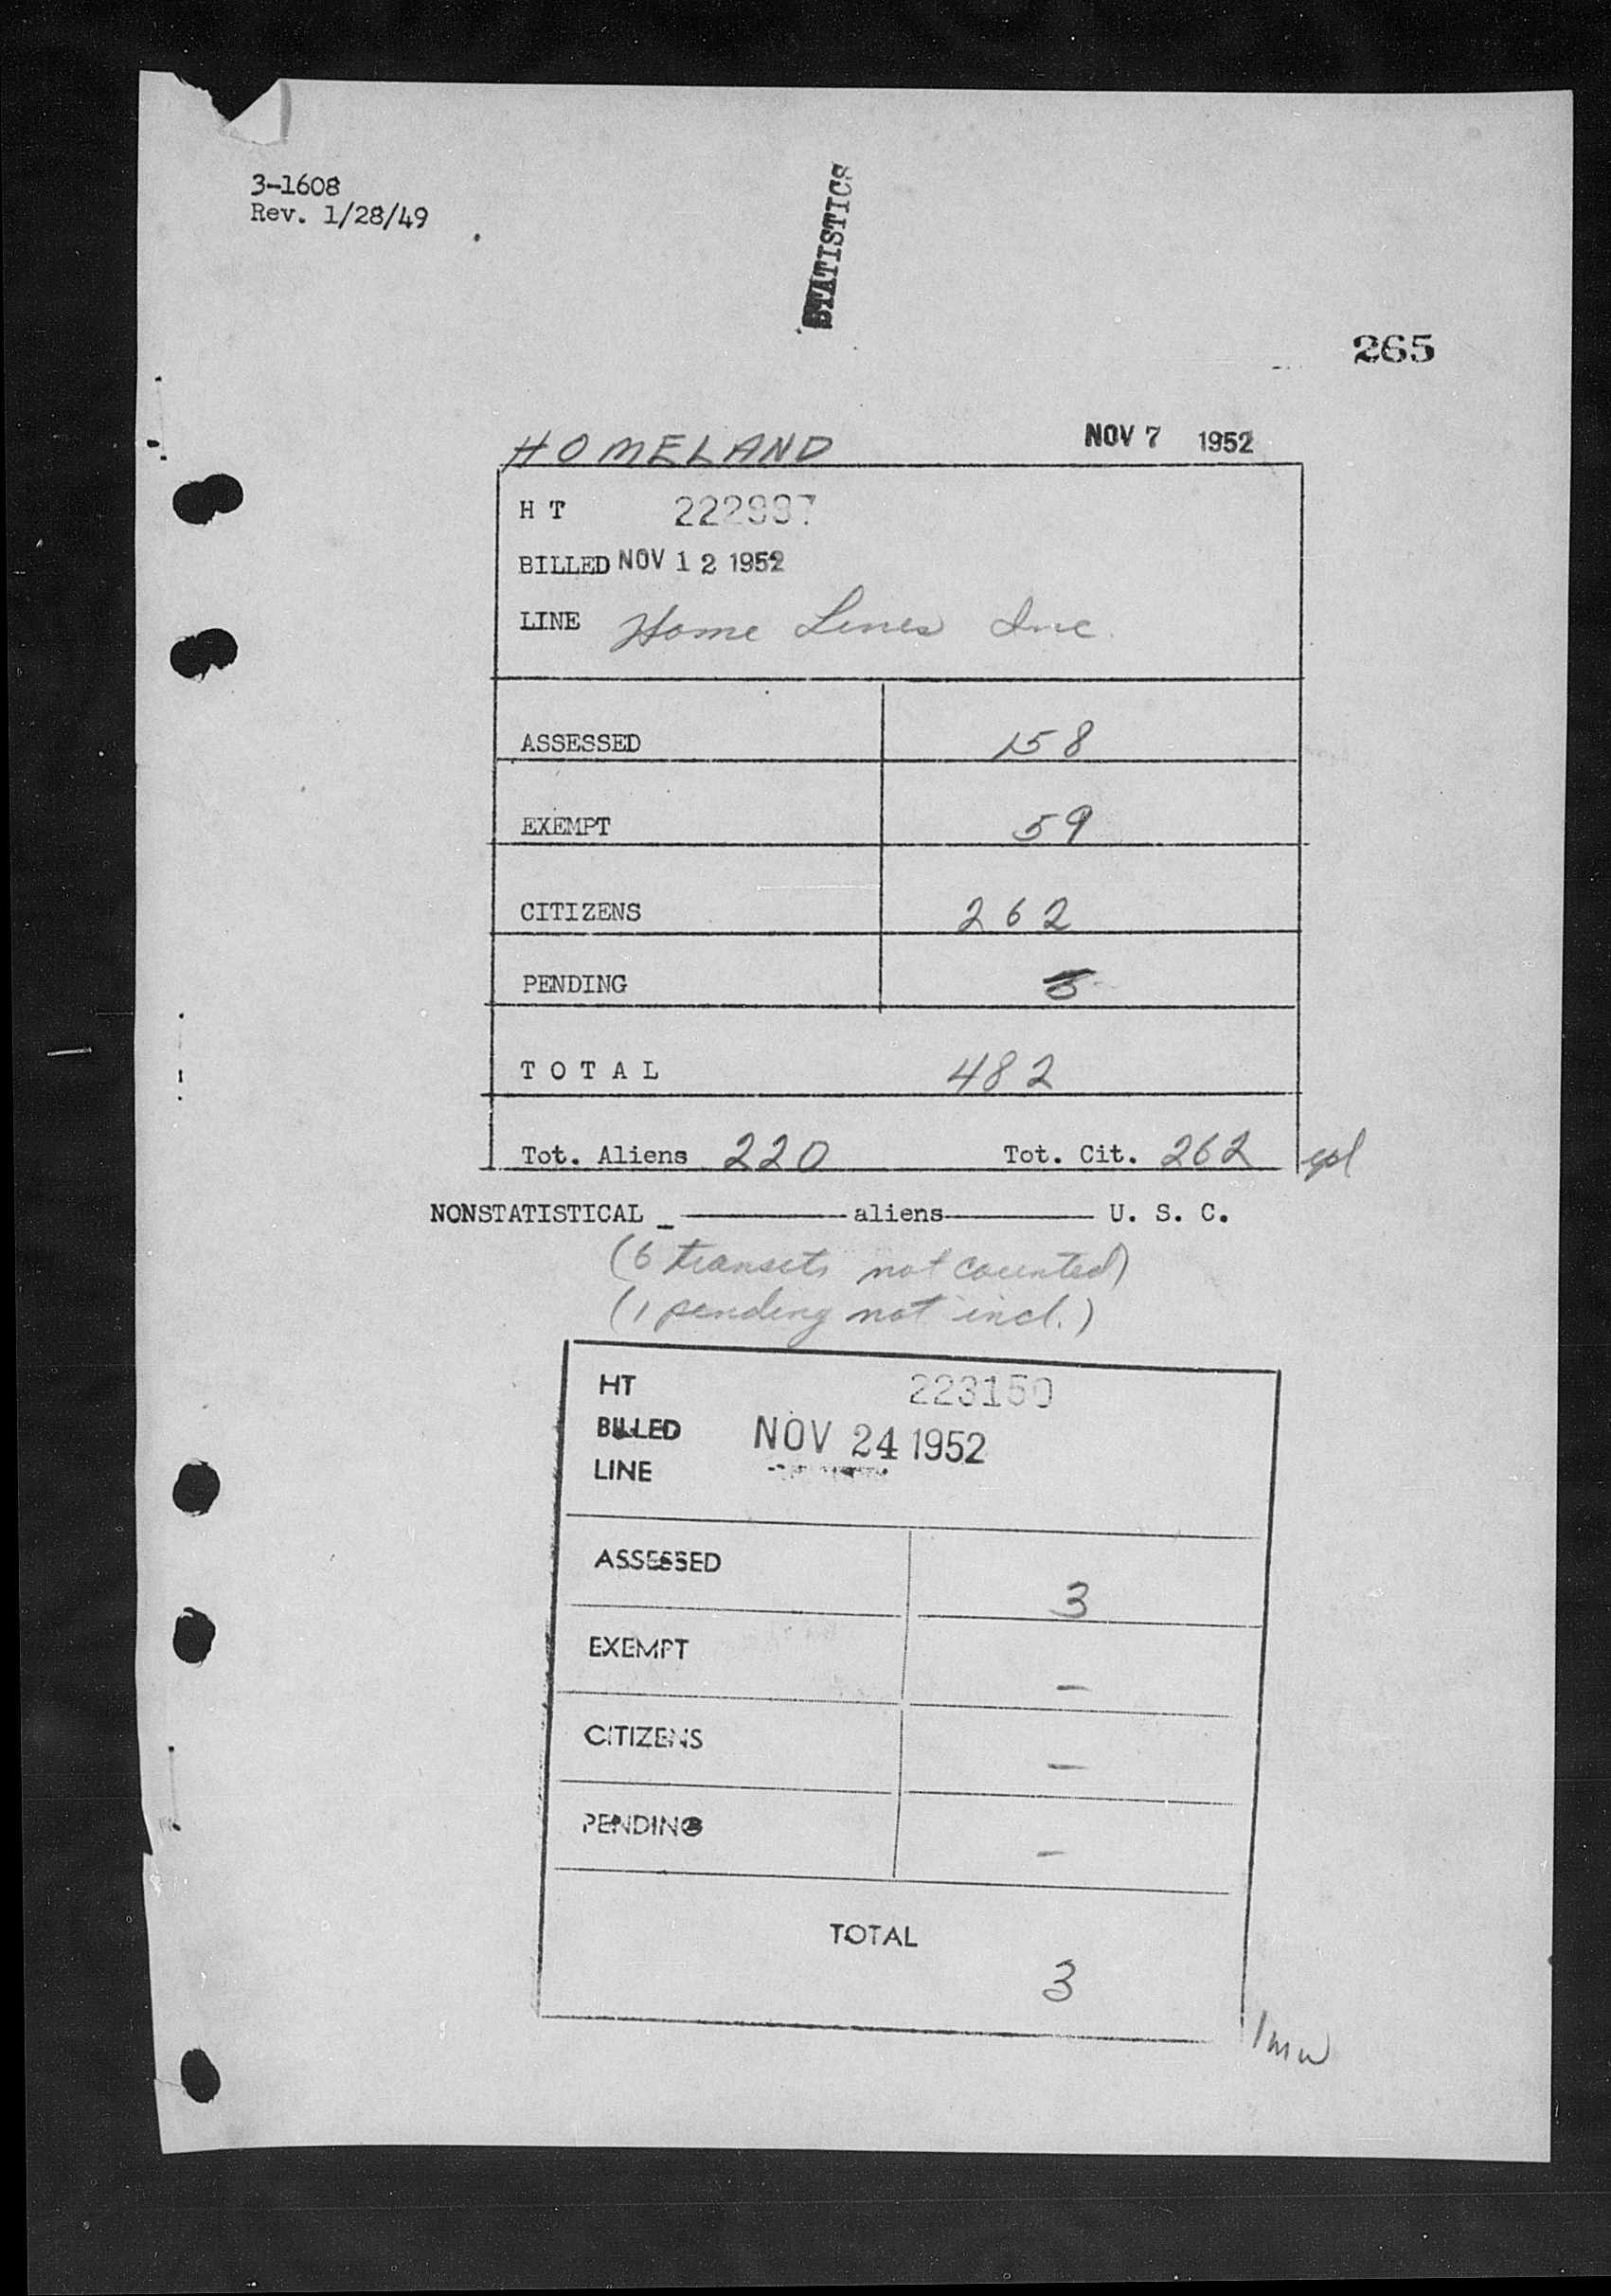 3-1608
Rev. 1/28/49
STATISTICS
265
HOMELAND NOV 7 1952
H T 222997
BILLED NOV 12 1952
LINE Home Lines Inc.
ASSESSED 158
EXEMPT 59
CITIZENS 262
PENDING
T O T A L 482
Tot. Aliens 220 Tot. Cit. 262
NONSTATISTICAL _ ———— aliens ———— U. S. C.
(6 transits not counted)
(1 pending not incl.)
HT 223150
BILLED NOV 24 1952
LINE
ASSESSED 3
EXEMPT –
CITIZENS –
PENDING –
TOTAL
3